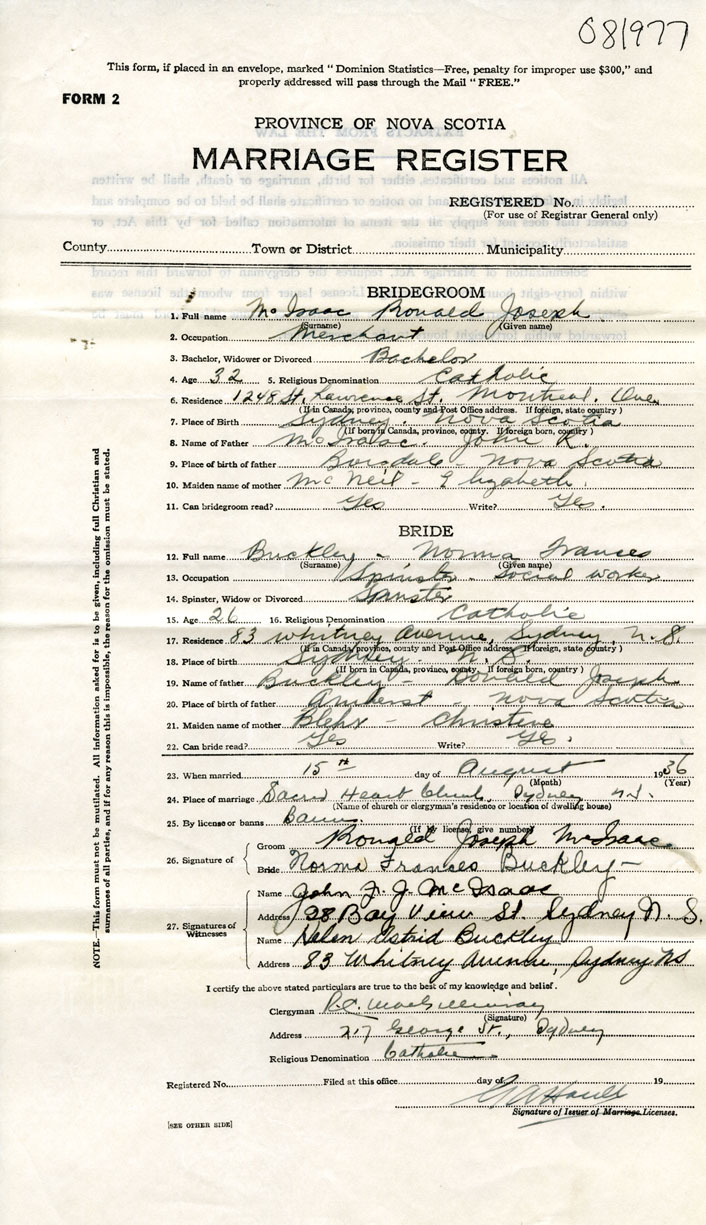 081977
This form, if placed in an envelope, marked "Dominion Statistics—Free, penalty for improper use $300," and
properly addressed will pass through the Mail "FREE."
FORM 2
PROVINCE OF NOVA SCOTIA
MARRIAGE REGISTER
REGISTERED No.
(For use of Registrar General only)
County Town or District Municipality
BRIDEGROOM
1. Full name McIsaac Ronald Joseph
(Surname) (Given name)
2. Occupation Merchant
3. Bachelor, Widower or Divorced Bachelor
4. Age 32 5. Religious Denomination Catholic
6. Residence 1248 St. Lawrence St. Montreal. Que
(If in Canada, province, county and Post Office address. If foreign, state country)
7. Place of Birth Sydney. Nova Scotia
(If born in Canada, province, county. If foreign born, country)
8. Name of Father McIsaac. John R.
9. Place of birth of father Boisdale - Nova Scotia
10. Maiden name of mother McNeil - Elizabeth.
11. Can bridegroom read? Yes Write? Yes.
BRIDE
12. Full name Buckley - Norma Frances
(Surname) (Given name)
13. Occupation Spinster - Social worker
14. Spinster, Widow or Divorced Spinster
15. Age 26 16. Religious Denomination Catholic
17. Residence 83 Whitney Avenue, Sydney, N.S.
(If in Canada, province, county and Post Office address. If foreign, state country)
18. Place of birth Sydney N.S.
(If born in Canada, province, county. If foreign born, country)
19. Name of father Buckley - Joseph
20. Place of birth of father Amherst - Nova Scotia
21. Maiden name of mother - Christene
22. Can bride read? Yes Write? Yes.
23. When married 15th day of August 1936
(Month) (Year)
24. Place of marriage Sacred Heart Church, Sydney N.S.
(Name of church or clergyman's residence or location of dwelling house)
25. By license or banns Banns
(If by license, give number)
26. Signature of Groom Ronald Joseph McIsaac
Bride Norma Frances Buckley—
27. Signatures of Witnesses Name John F. J. McIsaac
Address 28 Bay View St. Sydney N.S.
Name Helen Astrid Buckley
Address 83 Whitney Avenue, Sydney NS
I certify the above stated particulars are true to the best of my knowledge and belief.
Clergyman
(Signature)
Address 217 George St., Sydney
Religious Denomination Catholic
Registered No. Filed at this office day of 19
Signature of Issuer of Marriage Licenses.
[SEE OTHER SIDE]
NOTE.—This form must not be mutilated. All information asked for is to be given, including full Christian and
surnames of all parties, and if for any reason this is impossible, the reason for the omission must be stated.